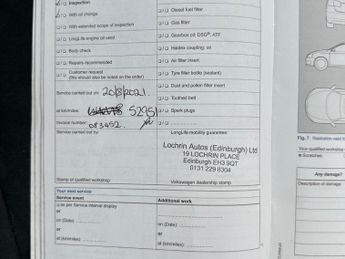 Inspection
With oil change
With extended scope of inspection
LongLife engine oil used
Body check
Repairs recommended
Customer request
(this should also be noted on the order)
Diesel fuel filter
Gas filter
Gearbox oil: DSG®, ATF
Haldex coupling: oil
Air filter insert
Tyre filler bottle (sealant)
Dust and pollen filter insert
Toothed belt
Spark plugs
Service carried out on: 20/8/2021.
at km/miles: 52951
Invoice number: 083452.
Service carried out by:
LongLife mobility guarantee
Lochrin Autos (Edinburgh) Ltd
19 LOCHRIN PLACE
Edinburgh EH3 9QT
0131 229 8304
Stamp of qualified workshop
Volkswagen dealership stamp
Your next service
Service event
Additional work
as per Service interval display
or
on (Date):
or
at (km/miles):
on (Date):
or
at (km/miles):
Fig. 7
Your qualified workshop
Scratches
Any damage?
Description of damage: